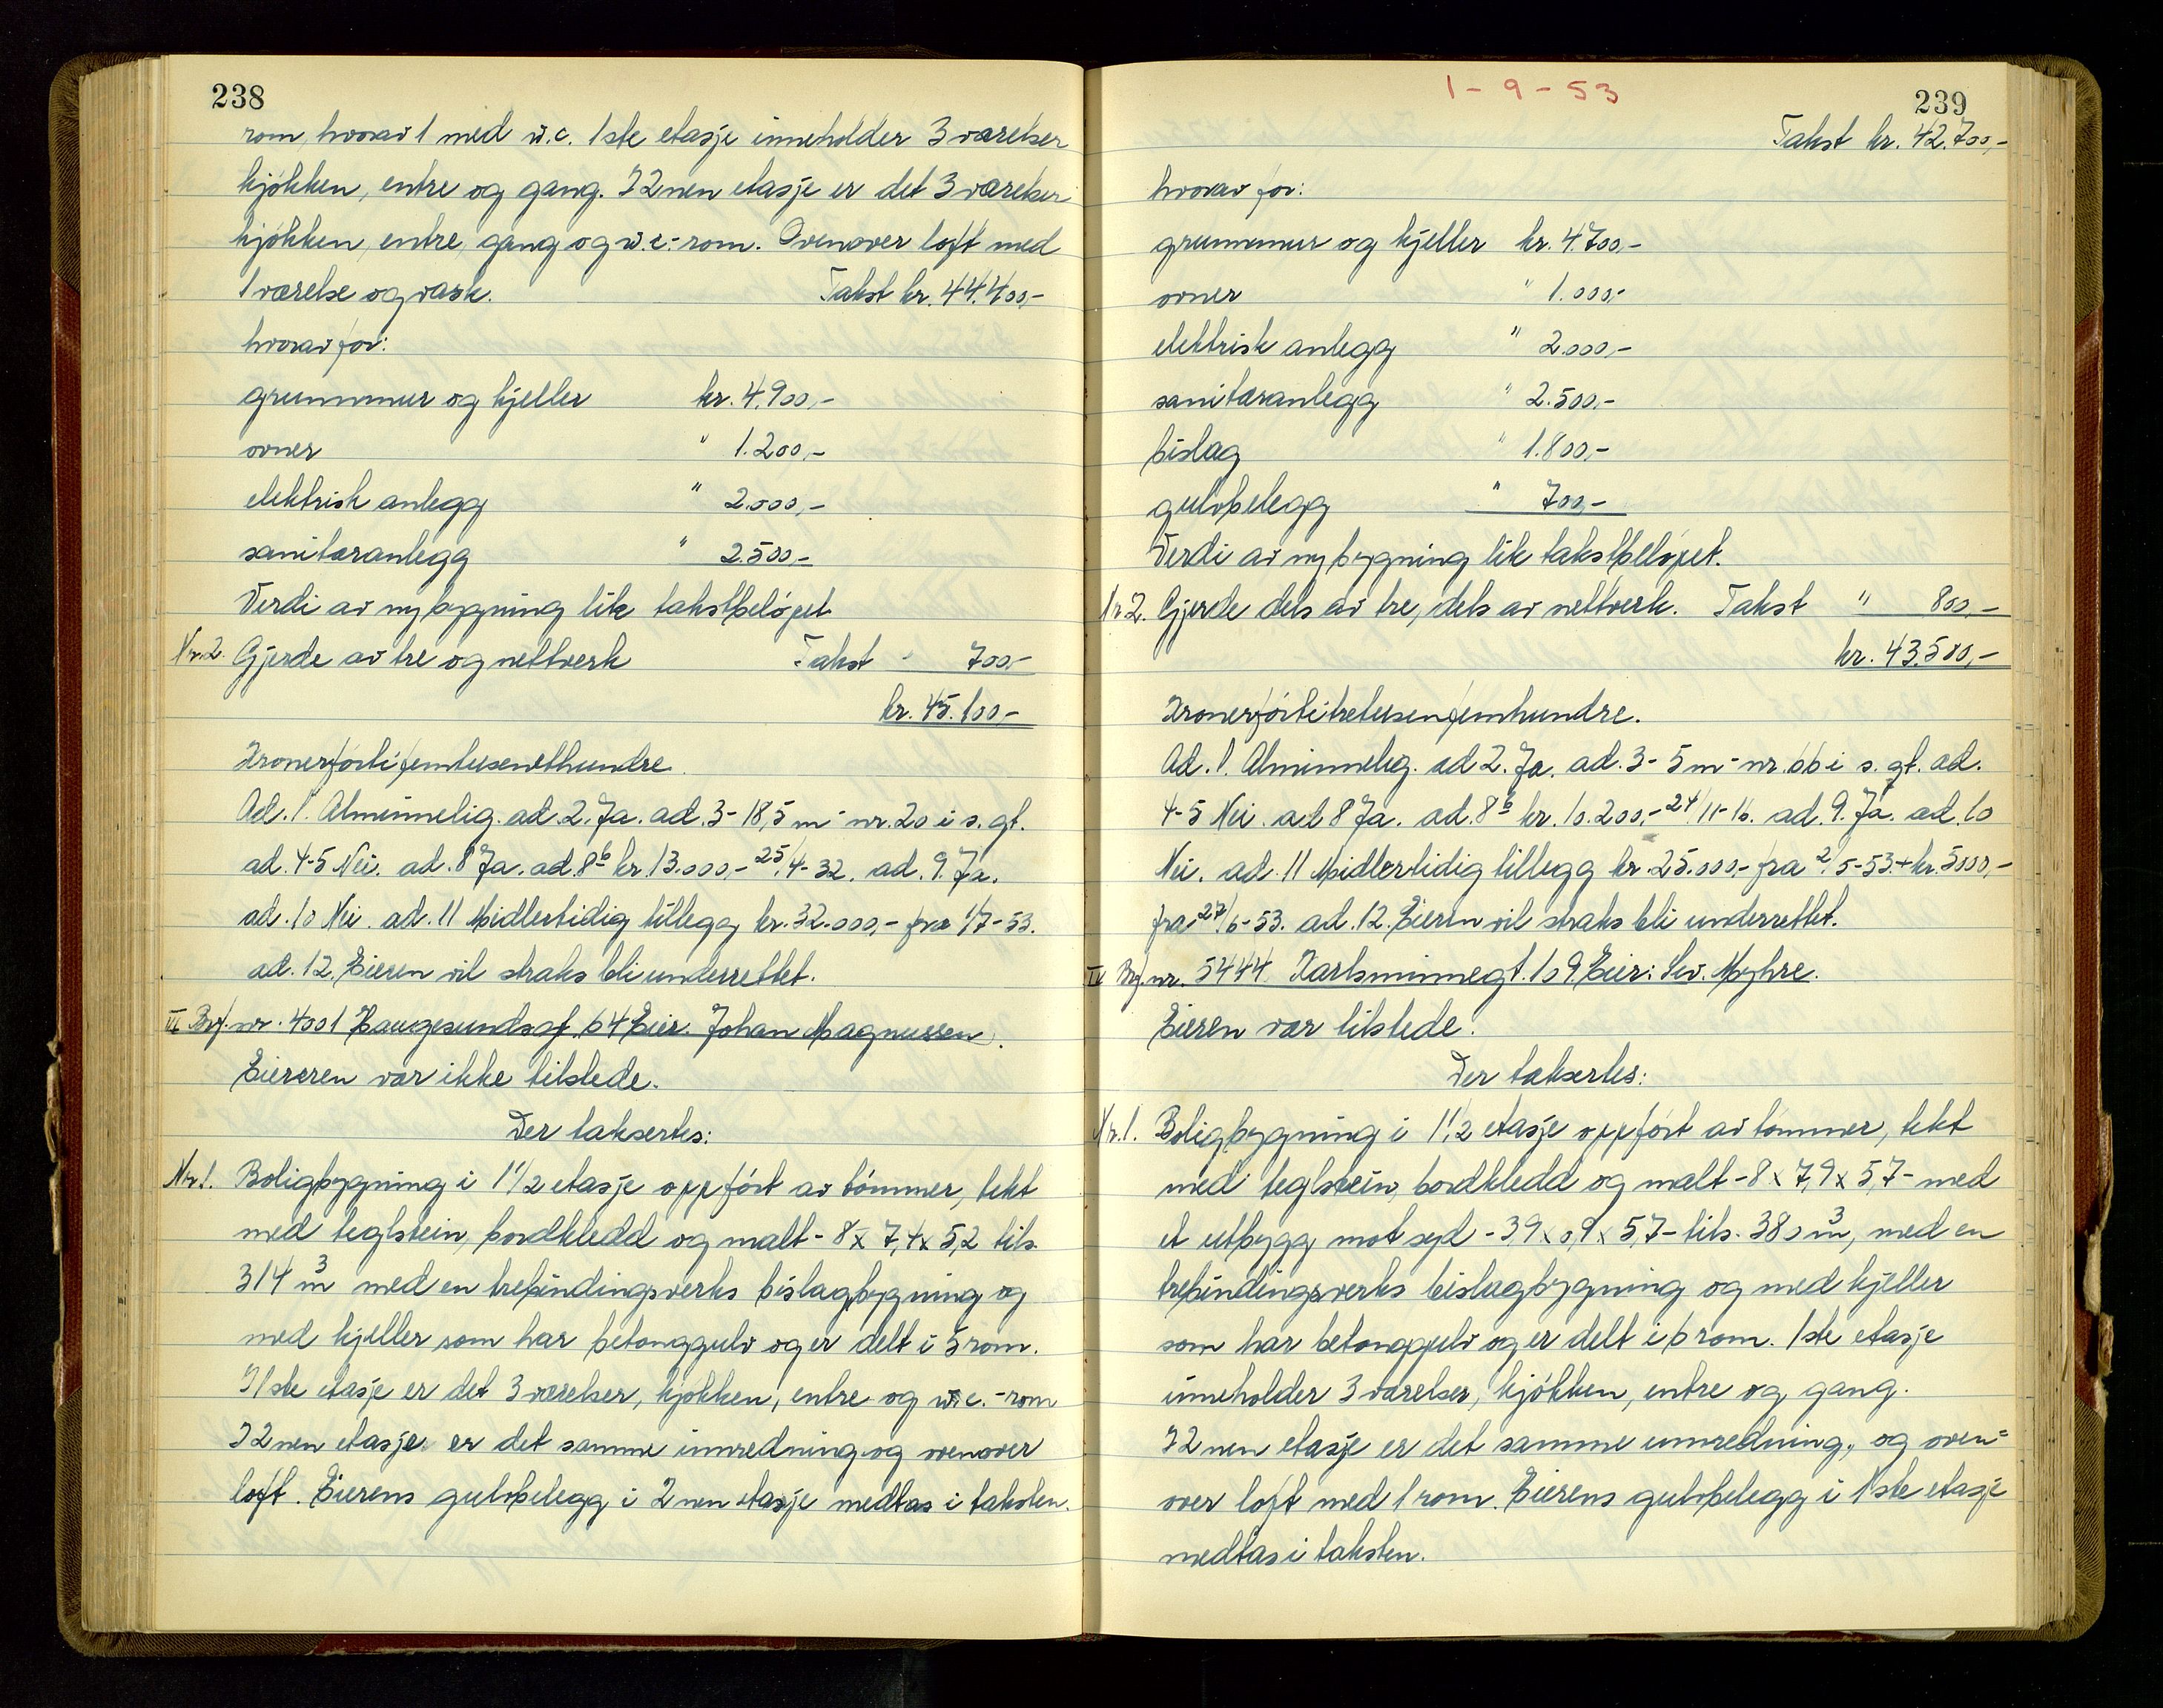 238
rom, hvorav 1 med w.c. 1ste etasje inneholder 3 værelser
kjøkken, entre og gang. I 2nen etasje er det 3 værelser
kjøkken, entre, gang og w.c.-rom. Ovenover loft med
1 værelse og vask. Takst kr. 44.400,-
hvorav for:
grunnmur og kjeller kr. 4.900,-
ovner " 1.200,-
elektrisk anlegg " 2.000,-
sanitæranlegg " 2.500,-
Verdi av ny bygning lik takstbeløpet
Nr. 2. Gjerde av tre og nettverk Takst " 700,-
kr. 45.100,-
Kronerførtifemtusenethundre.
Ad. 1. Alminnelig. ad. 2. Ja. ad. 3- 18,5 m - nr. 20 i s. gt.
ad. 4-5 Nei. ad. 8 Ja. ad. 8b kr. 13.000,- 25/4-32. ad. 9. Ja.
ad. 10 Nei. ad. 11 Midlertidig tillegg kr. 32.000,- fra 1/7-53.
ad. 12. Eieren vil straks bli underrettet.
III Brf. nr. 4001 Haugesundsgt. 64 Eier. Johan Magnussen.
Eiereren var ikke tilstede.
Der taksertes:
Nr. 1. Boligbygning i 1 1/2 etasje oppført av tømmer, tekt
med teglstein, bordkledd og malt - 8 x 7,4 x 5,2 tils.
314 m3 med en trebindingsverks bislagbygning og
med kjeller som har betonggulv og er delt i 5 rom.
I 1ste etasje er det 3 værelser, kjøkken, entre og w.c.-rom
I 2nen etasje er det samme innredning og ovenover
loft. Eierens gulvbelegg i 2nen etasje medtas i taksten.
1-9-53
239
Takst kr. 42.700,-
hvorav for:
grunnmur og kjeller kr. 4.700,-
ovner " 1.000,-
elektrisk anlegg " 2.000,-
sanitæranlegg " 2.500,-
bislag " 1.800,-
gulvbelegg " 700,-
Verdi av ny bygning lik takstbeløpet.
Nr. 2. Gjerde dels av tre, dels av nettverk. Takst " 800,-
kr. 43.500,-
Kronerførtitretusenfemhundre.
Ad. 1. Alminnelig. ad 2. Ja. ad. 3- 5 m - nr. 66 i s. gt. ad.
4-5 Nei. ad 8 Ja. ad. 8b kr. 10.200,- 24/11-16. ad. 9. Ja. ad. 10
Nei. ad. 11 Midlertidig tillegg kr. 25.000,- fra 2/5-53 + kr. 5000,-
fra 27/6-53. ad. 12. Eieren vil straks bli underrettet.
IV Brf. nr. 5444. Karlsminnegt. 109. Eier: Sev. Myhre.
Eieren var tilstede.
Der taksertes:
Nr. 1. Boligbygning i 1 1/2 etasje oppført av tømmer, tekt
med teglstein, bordkledd og malt - 8 x 7,9 x 5,7 - med
et utbygg mot syd - 3,9 x 0,9 x 5,7 - tils. 380 m3, med en
trebindingsverks bislagbygning og med kjeller
som har betonggulv og er delt i 6 rom. 1ste etasje
inneholder 3 værelser, kjøkken, entre og gang.
I 2nen etasje er det samme innredning, og oven=
over loft med 1 rom. Eierens gulvbelegg i 1ste etasje
medtas i taksten.